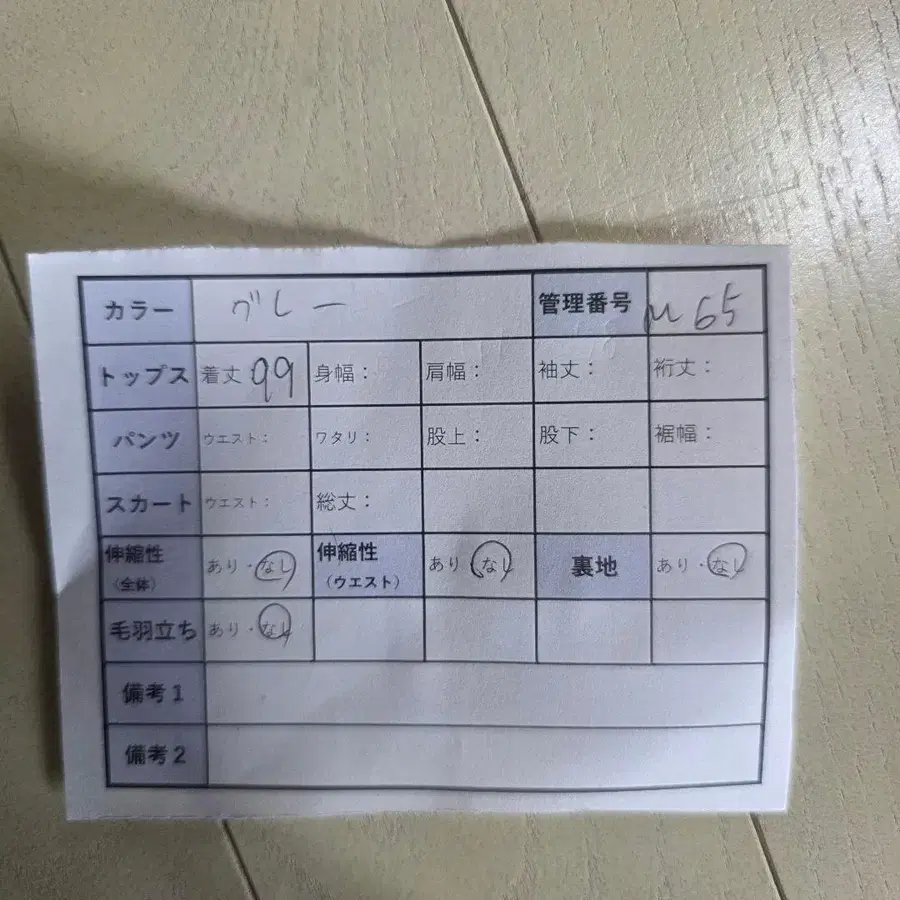 カラー グレー 管理番号 M65
トップス 着丈：99 身幅： 肩幅： 袖丈： 裄丈：
パンツ ウエスト： ワタリ： 股上： 股下： 裾幅：
スカート ウエスト： 総丈：
伸縮性（全体） あり・なし 伸縮性（ウエスト） あり なし 裏地 あり・なし
毛羽立ち あり・なし
備考1
備考2